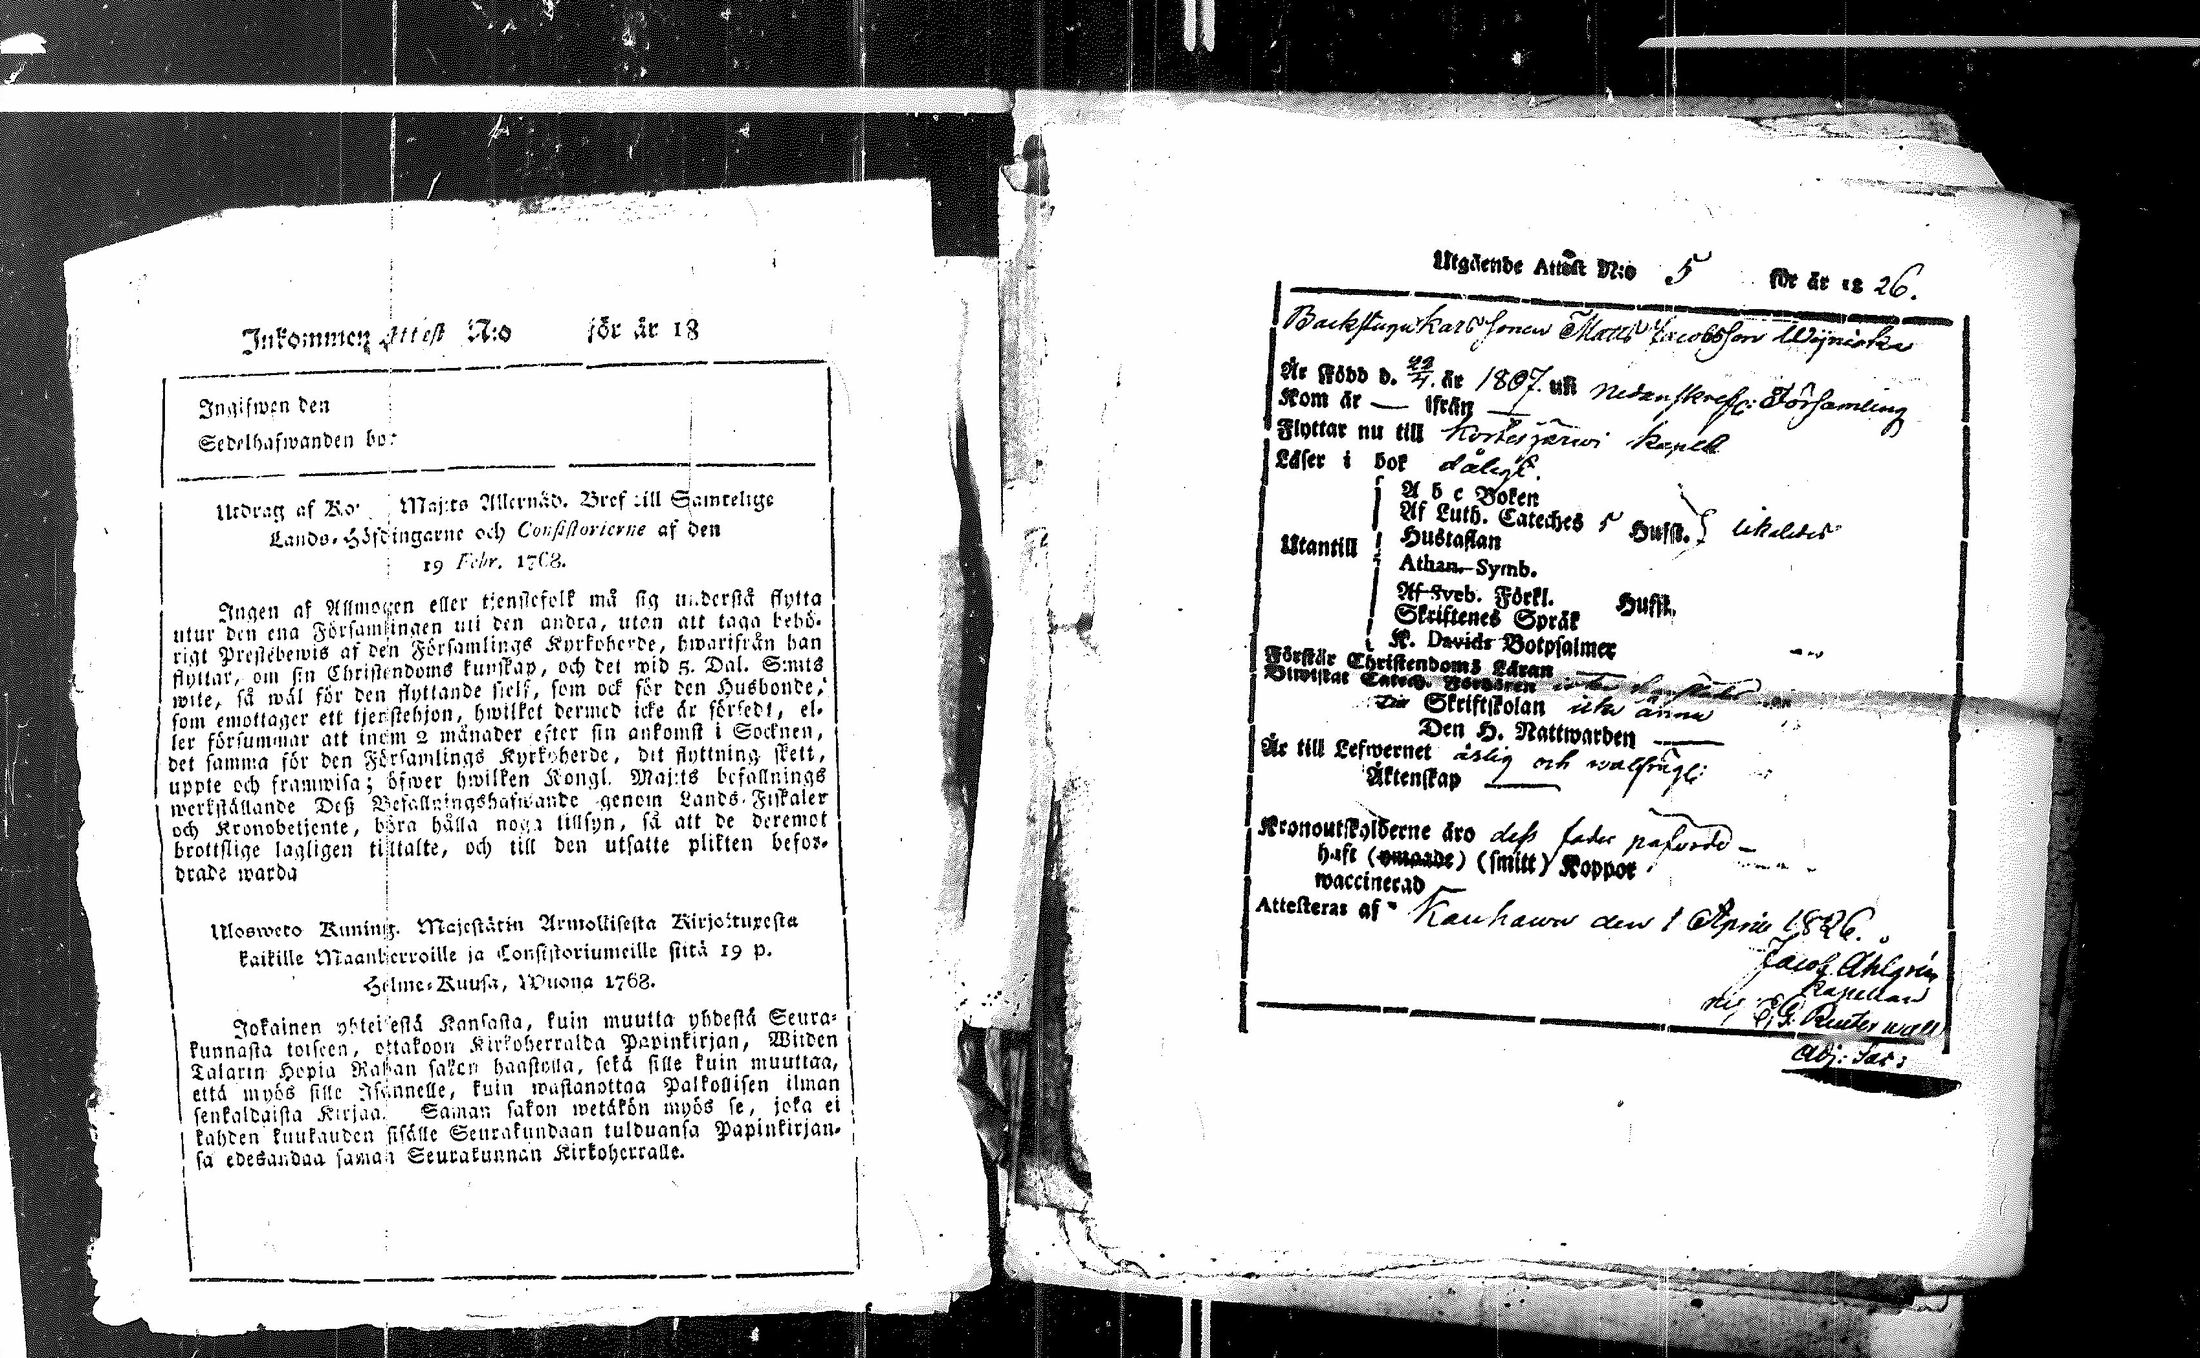 Inkommen Attest N:o för år 18
Ingifwen den
Sedelhafwanden bor
Utdrag af Ko Maj:ts Allernåd. Bref till Samtelige
Lands-Höfdingarne och Consistorierne af den
19 Febr. 1768.
Ingen af Allmogen eller tjenstefolk må sig understå flytta
utur den ena Församlingen uti den andra, utan att taga behö-
rigt Prestebewis af den Församlings Kyrkoherde, hwarifrån han
flyttar, om sin Christendoms kunskap, och det wid 5. Dal. S:mts
wite, så wäl för den flyttande sielf, som ock för den Husbonde,
som emottager ett tjenstehjon, hwilket dermed icke är försedt, el-
ler försummar att inom 2 månader efter sin ankomst i Socknen,
det samma för den Församlings Kyrkoherde, dit flyttning skett,
uppte och framwisa; öfwer hwilken Kongl. Maj:ts befallnings
werkställande Deß Befallningshafwande genom Lands-Fiskaler
och Kronobetjente, böra hålla noga tillsyn, så att de deremot
brottslige lagligen tilltalte, och till den utsatte plikten befor-
drade warda
Ulosweto Kuning. Majestätin Armollisesta Kirjoituxesta
kaikille Maanherroille ja Consistoriumeille siitä 19 p.
Helme-Kuusa, Wuona 1768.
Jokainen yhteisestä Kansasta, kuin muutta yhdestä Seura-
kunnasta toiseen, ottakoon Kirkoherralda Papinkirjan, Wiiden
Talarin Hopia Rahan sakon haastolla, sekä sille kuin muuttaa,
että myös sille Isännelle, kuin wastanottaa Palkollisen ilman
senkaldaista Kirjaa. Saman sakon wetäkön myös se, joka ei
kahden kuukauden sisälle Seurakundaan tulduansa Papinkirjan-
sa edesandaa saman Seurakunnan Kirkoherralle.
Utgående Attest N:o 5 för år 18 26.
Backstugukarls Sonen Matts Jacobsson Wijniska
Är född d. 22/4. år 1807. uti nedanskrefr: Församling
Kom år — ifrån —
Flyttar nu till Kortesjärwi kapell
Läser i bok dåligt.
A b c Boken
Af Luth. Cateches 5 Hufst.
Hustaflan
Utantill
Athan. Symb.
Af Sveb. Förkl. Hufst.
Skriftenes Språk
K. Davids Botpsalmer
Förstår Christendoms Läran
Biwistat Catech. Förhören
Skriftskolan icke ännu
Den H. Nattwarden —
Är till Lefwernet ärlig och wälfrägd:
Äktenskap —
Kronoutskylderne äro dess fader påförde —
haft (ymgade) (smitt) Koppor
waccinerad —
Attesteras af Kauhawa den 1 April 1826.
Jacob Ahlgrén
kapellan
E. G. Reuterwall
Adj: Sac: